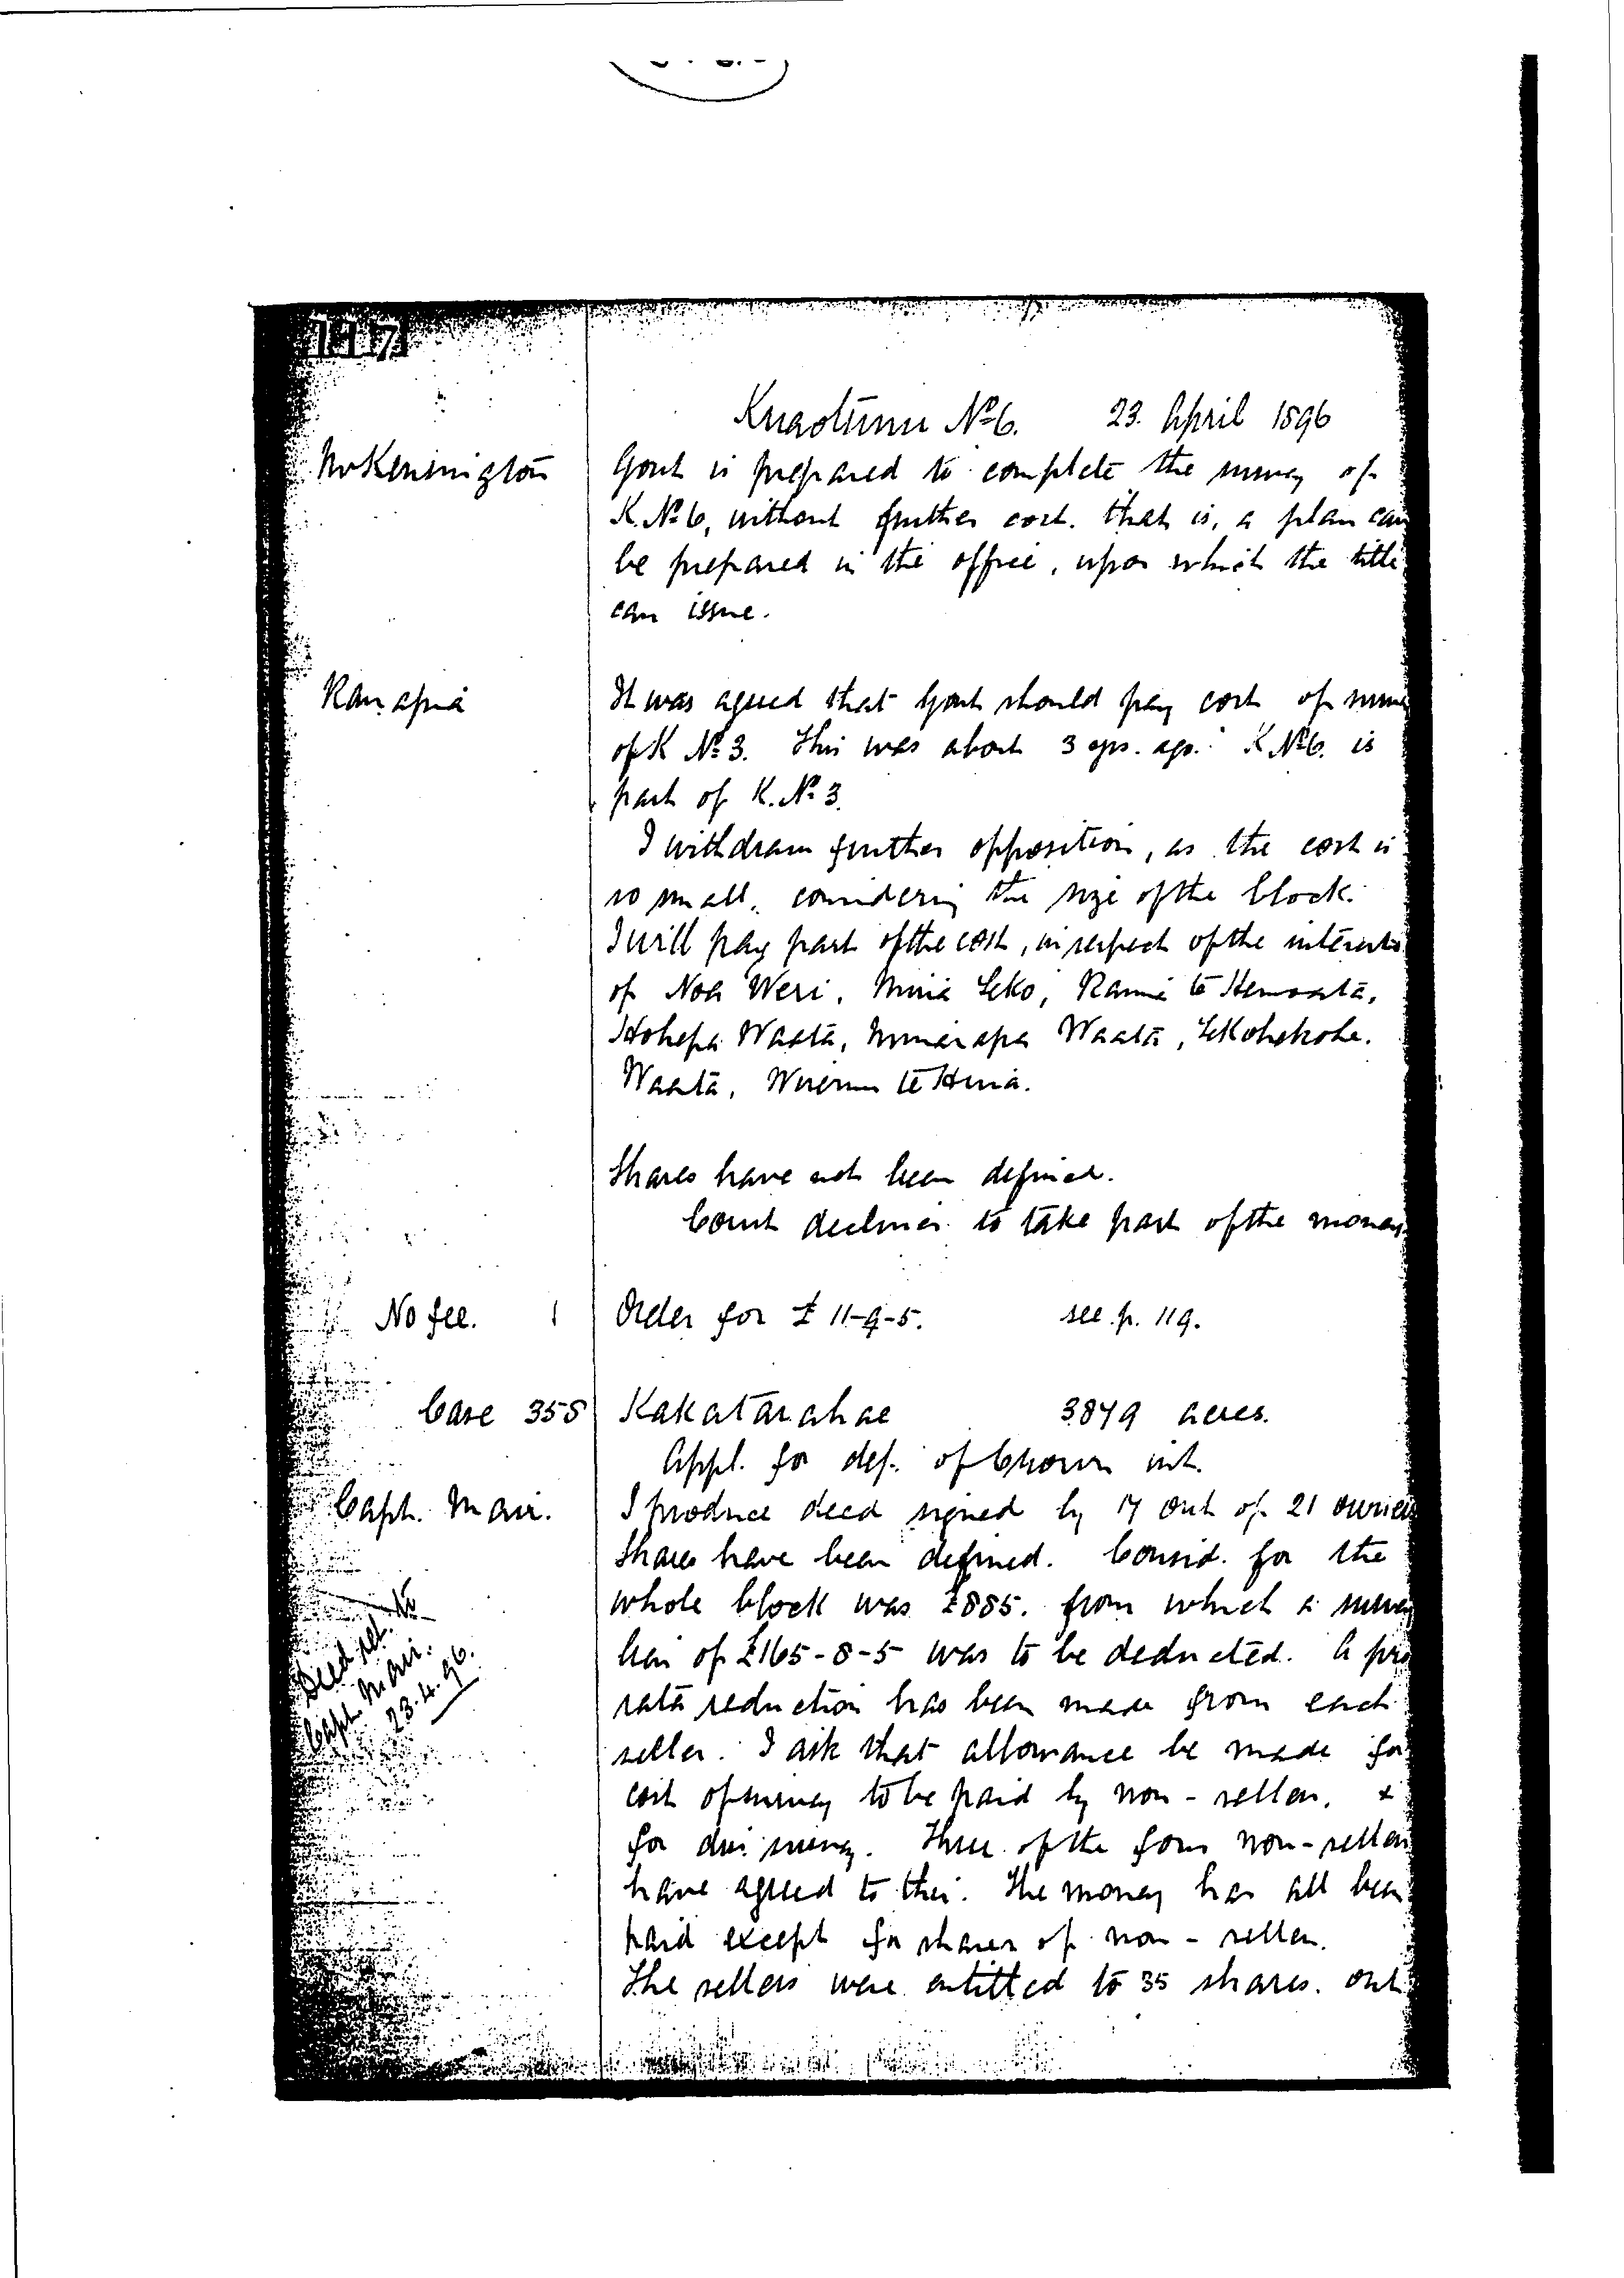 117
Kuaotunu No 6. 23. April 1896
Mr Kensington
Govt is prepared to complete the survey of
K. No 6, without further cost. that is, a plan can
be prepared in the office, upon which the title
can issue.
Ranapia
It was agreed that Govt should pay cost of
of K No 3. This was about 3 yrs. ago. K No 6. is
part of K. No 3.
I withdraw further opposition, as the cost is
so small, considering the size of the block.
I will pay part of the cost, in respect of the interests
of Noa Weri, Miria Teko, te
Hohepa Waata, Waata, Te Kohekohe
Waata, Wiremu te Huia.
Shares have not been defined.
Court declines to take part of the money
No fee. 1 Order for £ 11-9-5. see p. 119.
Case 355 Kakatarahae 3849 acres.
Appl. for def. of Crown int.
Capt. Mair. I produce deed signed by 17 out of 21 owners
Shares have been defined. Consid. for the
whole block was £885. from which a survey
lien of £165-8-5 was to be deducted. A pro
rata reduction has been made from each
seller. I ask that allowance be made for
cost of survey to be paid by non-sellers, &
for div. survey. Three of the four non-sellers
have agreed to this. The money has all been
paid except for shares of non-sellers.
The sellers were entitled to 35 shares. out
Deed ret. to
Capt. Mair.
23.4.96.